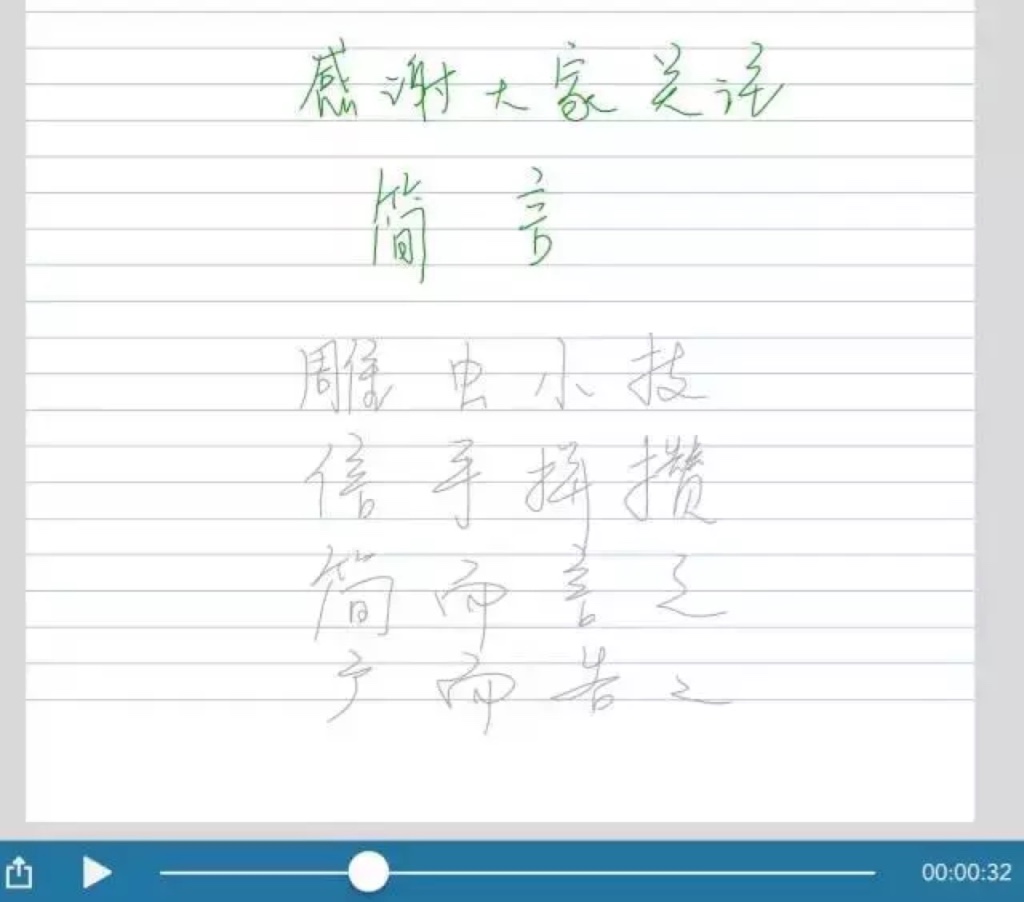 感谢大家关注
简言
雕虫小技
信手拼攒
简而言之
广而告之
00:00:32